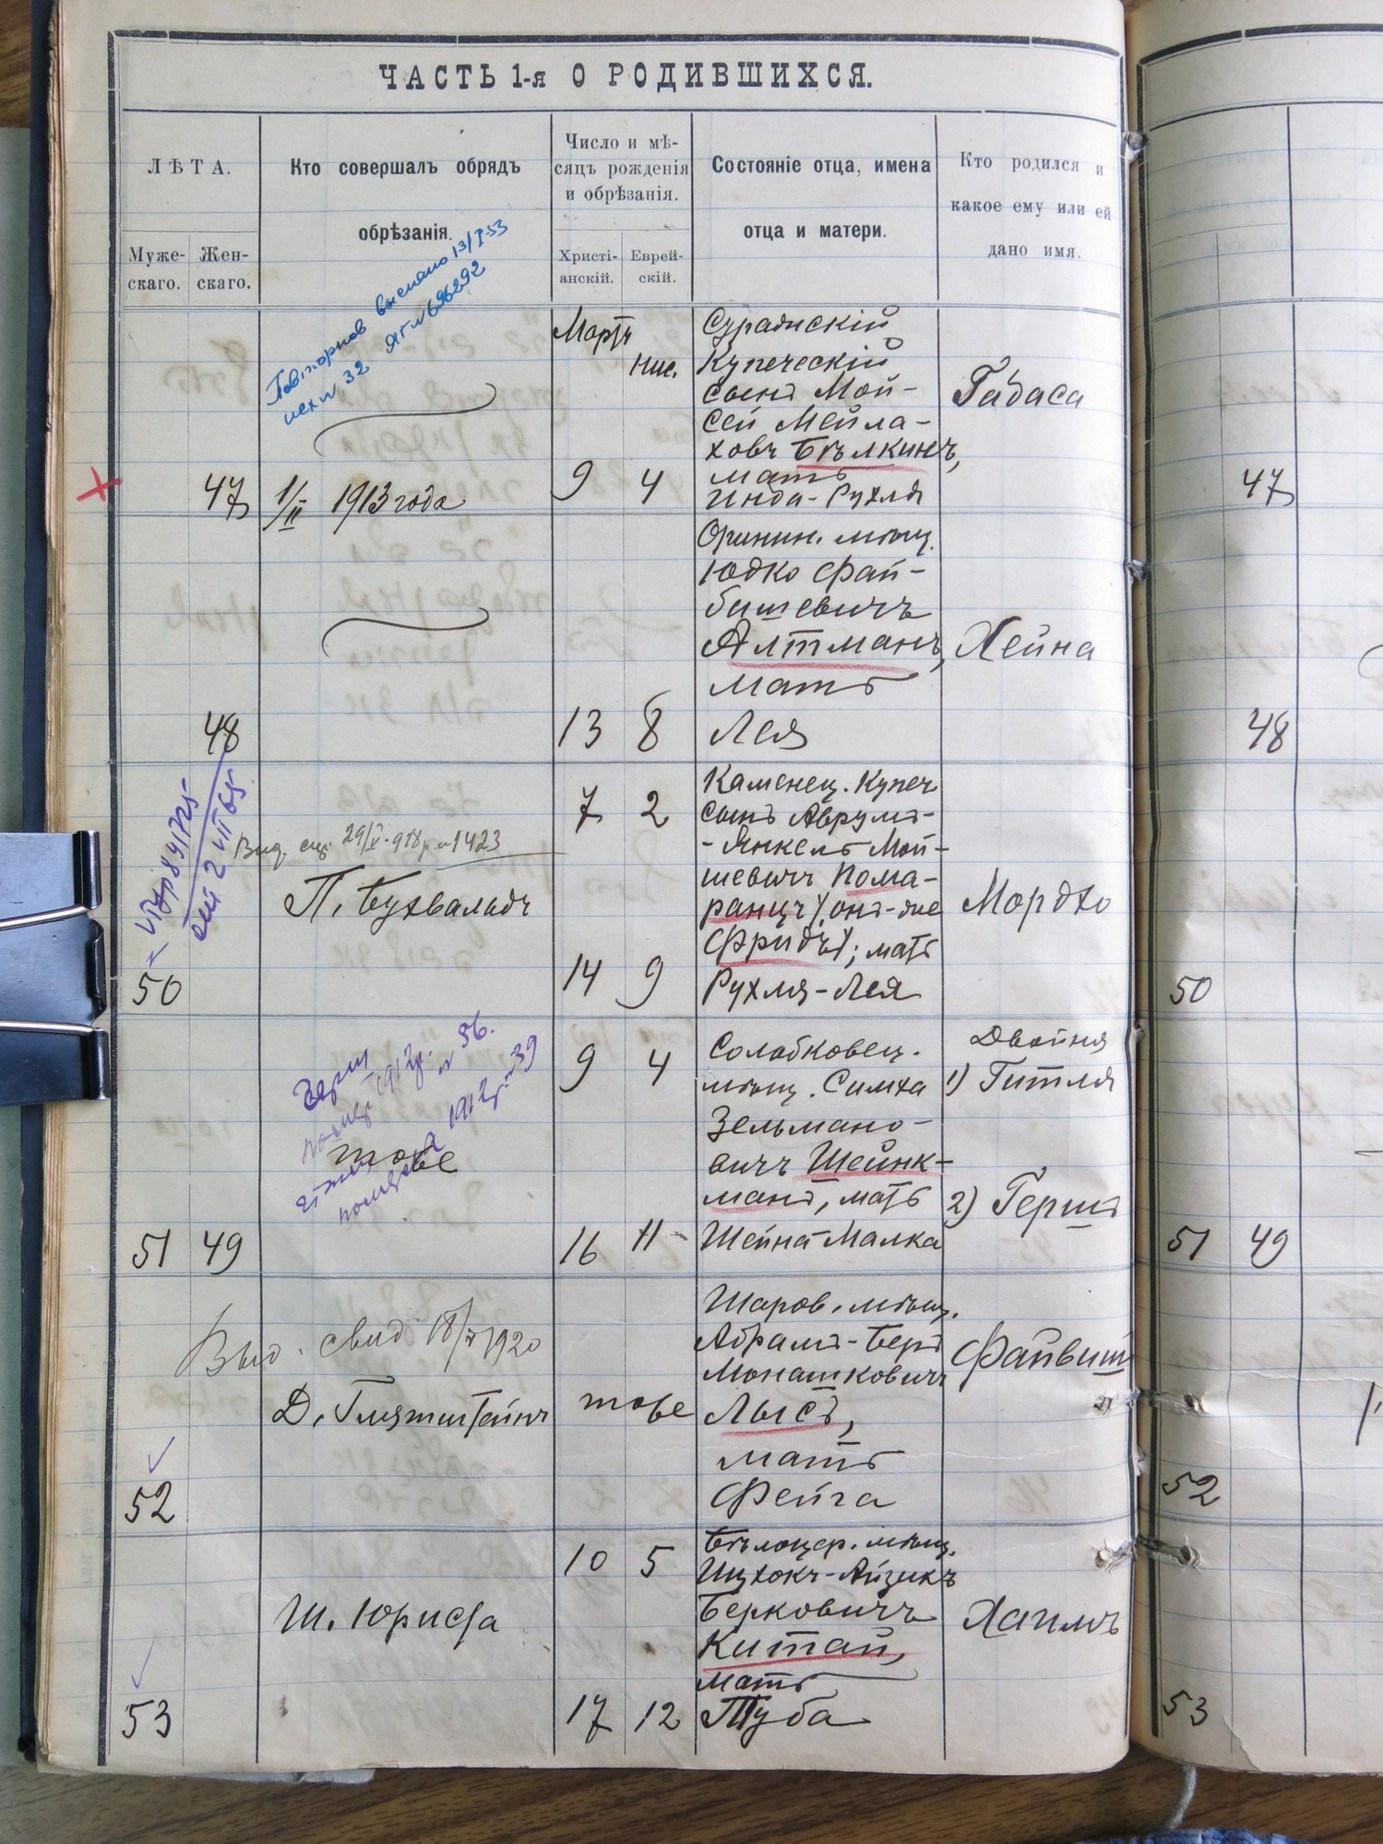 ЧАСТЬ 1-я О РОДИВШИХСЯ.
ЛѢТА.
Муже-
скаго.
Жен-
скаго.
Кто совершалъ обрядъ
обрѣзанія.
Число и мѣ-
сяцъ рожденія
и обрѣзанія.
Христі-
анскій.
Еврей-
скій.
Состояніе отца, имена
отца и матери.
Кто родился и
какое ему или ей
дано имя.
Повторнов выслано 13/I-53
исх № 32 ЯГ № 696292
47
1/II 1913 года
Мартъ
Нис.
9 4
Купеческій
сынъ Мой-
сей Мейла-
ховъ Бѣлкинъ,
мать
Инда-Рухля
Гадаса
47
48
13 8
Оринин. мѣщ.
Юдко Фай-
бишевичъ
Алтманъ,
мать
Лея
Хейна
48
Выд. 29/X-918 г. №1423
П. Бухвальдъ
50
7 2
14 9
Каменец. Купеч
сынъ Аврумъ-
-Янкель Мой-
шевичъ Пома-
ранцъ (онъ-же
Фридъ); мать
Рухля-Лея
Мордко
50
1912г. № 56.
1912г. №39
тоже
51 49
9 4
16 11
Солобковец.
мѣщ. Симха
Зельмано-
вичъ Шейнк-
манъ, мать
Шейна Малка
Двойня
1) Гитля
2) Гершъ
51 49
Выд. свид. 18/ 1920
Д. Глязштейнъ
52
тоже
Шаров. мѣщ.
Абрамъ-Беръ
Монашковичъ
Лысъ,
мать
Фейга
Файвиш
52
Ш. Юриста
53
10 5
17 12
Бѣлоцер. мѣщ.
Ицхокъ-Айзикъ
Берковичъ
Китай,
мать
Туба
Хаимъ
53